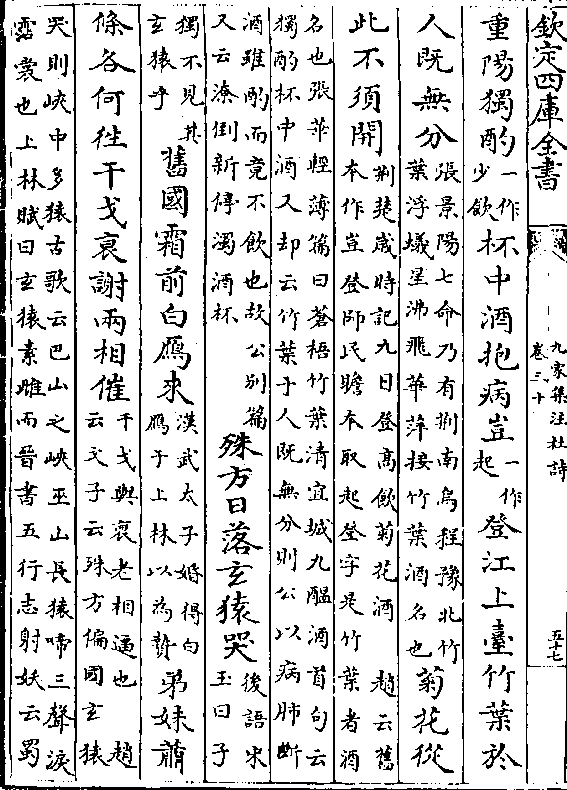 欽定四庫全書
九家集注杜詩
卷三十
五十七
重陽獨酌一作少飲杯中酒抱病豈一作起登江上臺竹葉於
人既無分張景陽七命乃有荆南烏程豫北竹葉浮蟻星沸飛華萍接竹葉酒名也菊花從
此不須開荆楚歲時記九日登高飲菊花酒 趙云舊本作豈登師民瞻本取起登字是竹葉者酒
名也張華輕薄篇曰蒼梧竹葉清宜城九醞酒首句云獨酌杯中酒又却云竹葉于人既無分則公以病肺斷
酒雖酌而竟不飲也故公别篇又云潦倒新停濁酒杯殊方日落玄猿哭後語宋玉曰子
獨不見其玄猿乎舊國霜前白鴈來漢武太子婚得白鴈于上林以為贄弟妹蕭
條各何往干戈衰謝兩相催干戈與衰老相逼也 趙云文子云殊方偏國玄猿
哭則峽中多猿古歌云巴山之峽巫山長猿啼三聲淚霑裳也上林賦曰玄猿素雌而晉書五行志射妖云蜀